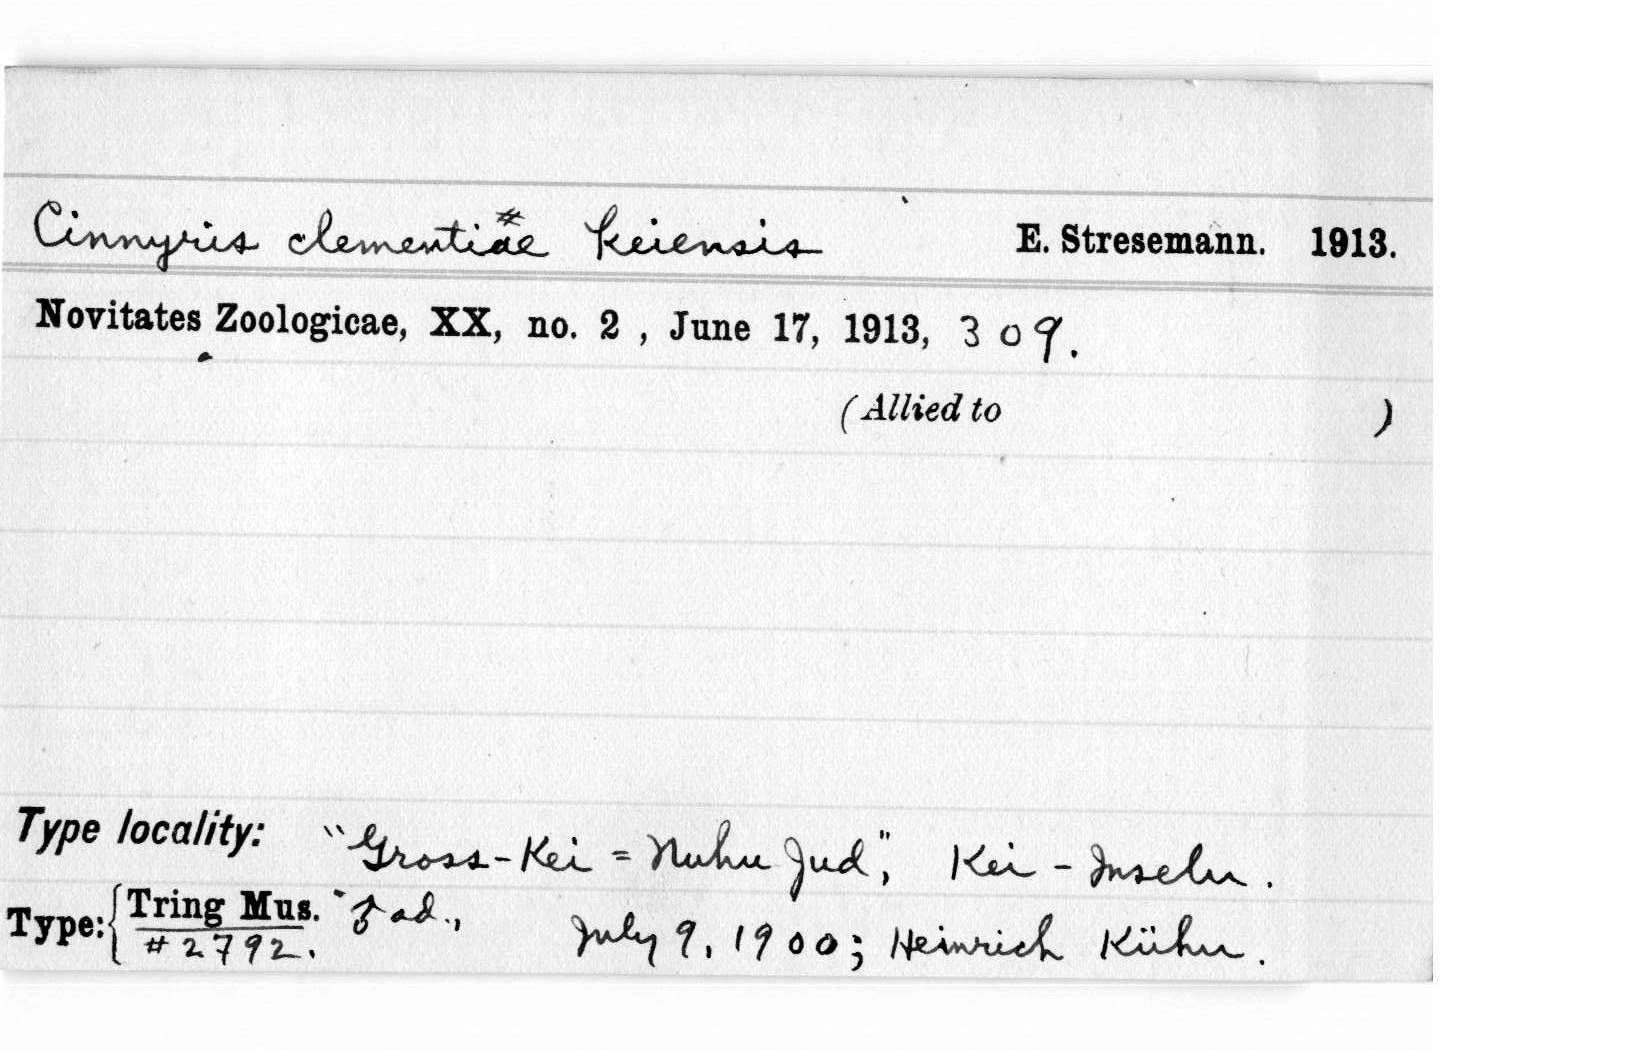 Cinnyris clementiae keiensis E. Stresemann. 1913.
Novitates Zoologicae, XX, no. 2, June 17, 1913, 309.
(Allied to )
Type locality: "Gross-Kei = Nuhu Jud", Kei - Inseln.
Type: { Tring Mus. ♂ ad., July 9, 1900; Heinrich Kühn.
#2792.